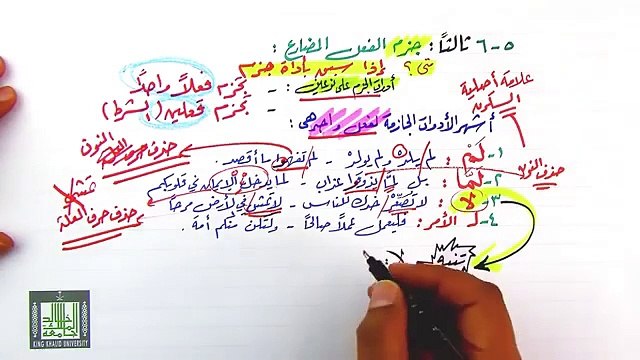 ٥-٦ ثالثاً: جزم الفعل المضارع:
متى؟ إذا سبق بأداة جزم
أدوات الجزم على نوعين: - تجزم فعلاً واحداً
- تجزم فعلين (الشرط)
علامة أصلية
السكون
أشهر الأدوات الجازمة لفعل واحد هي:
١- لَمْ: لم يلد ولم يولد - لم تفهموا ما أقصد.
٢- لمّا: بل لمّا يذوقوا عذاب - لما يدخل الإيمان في قلوبكم
٣- لا: لا تصعّر خدك للناس - لا تمش في الأرض مرحاً
٤- لـ الأمر: فليعمل عملاً صالحاً - ولتكن منكم أمة.
حذف النون
حذف حرف العلة
تنبيه
جامعة الملك خالد
KING KHALID UNIVERSITY